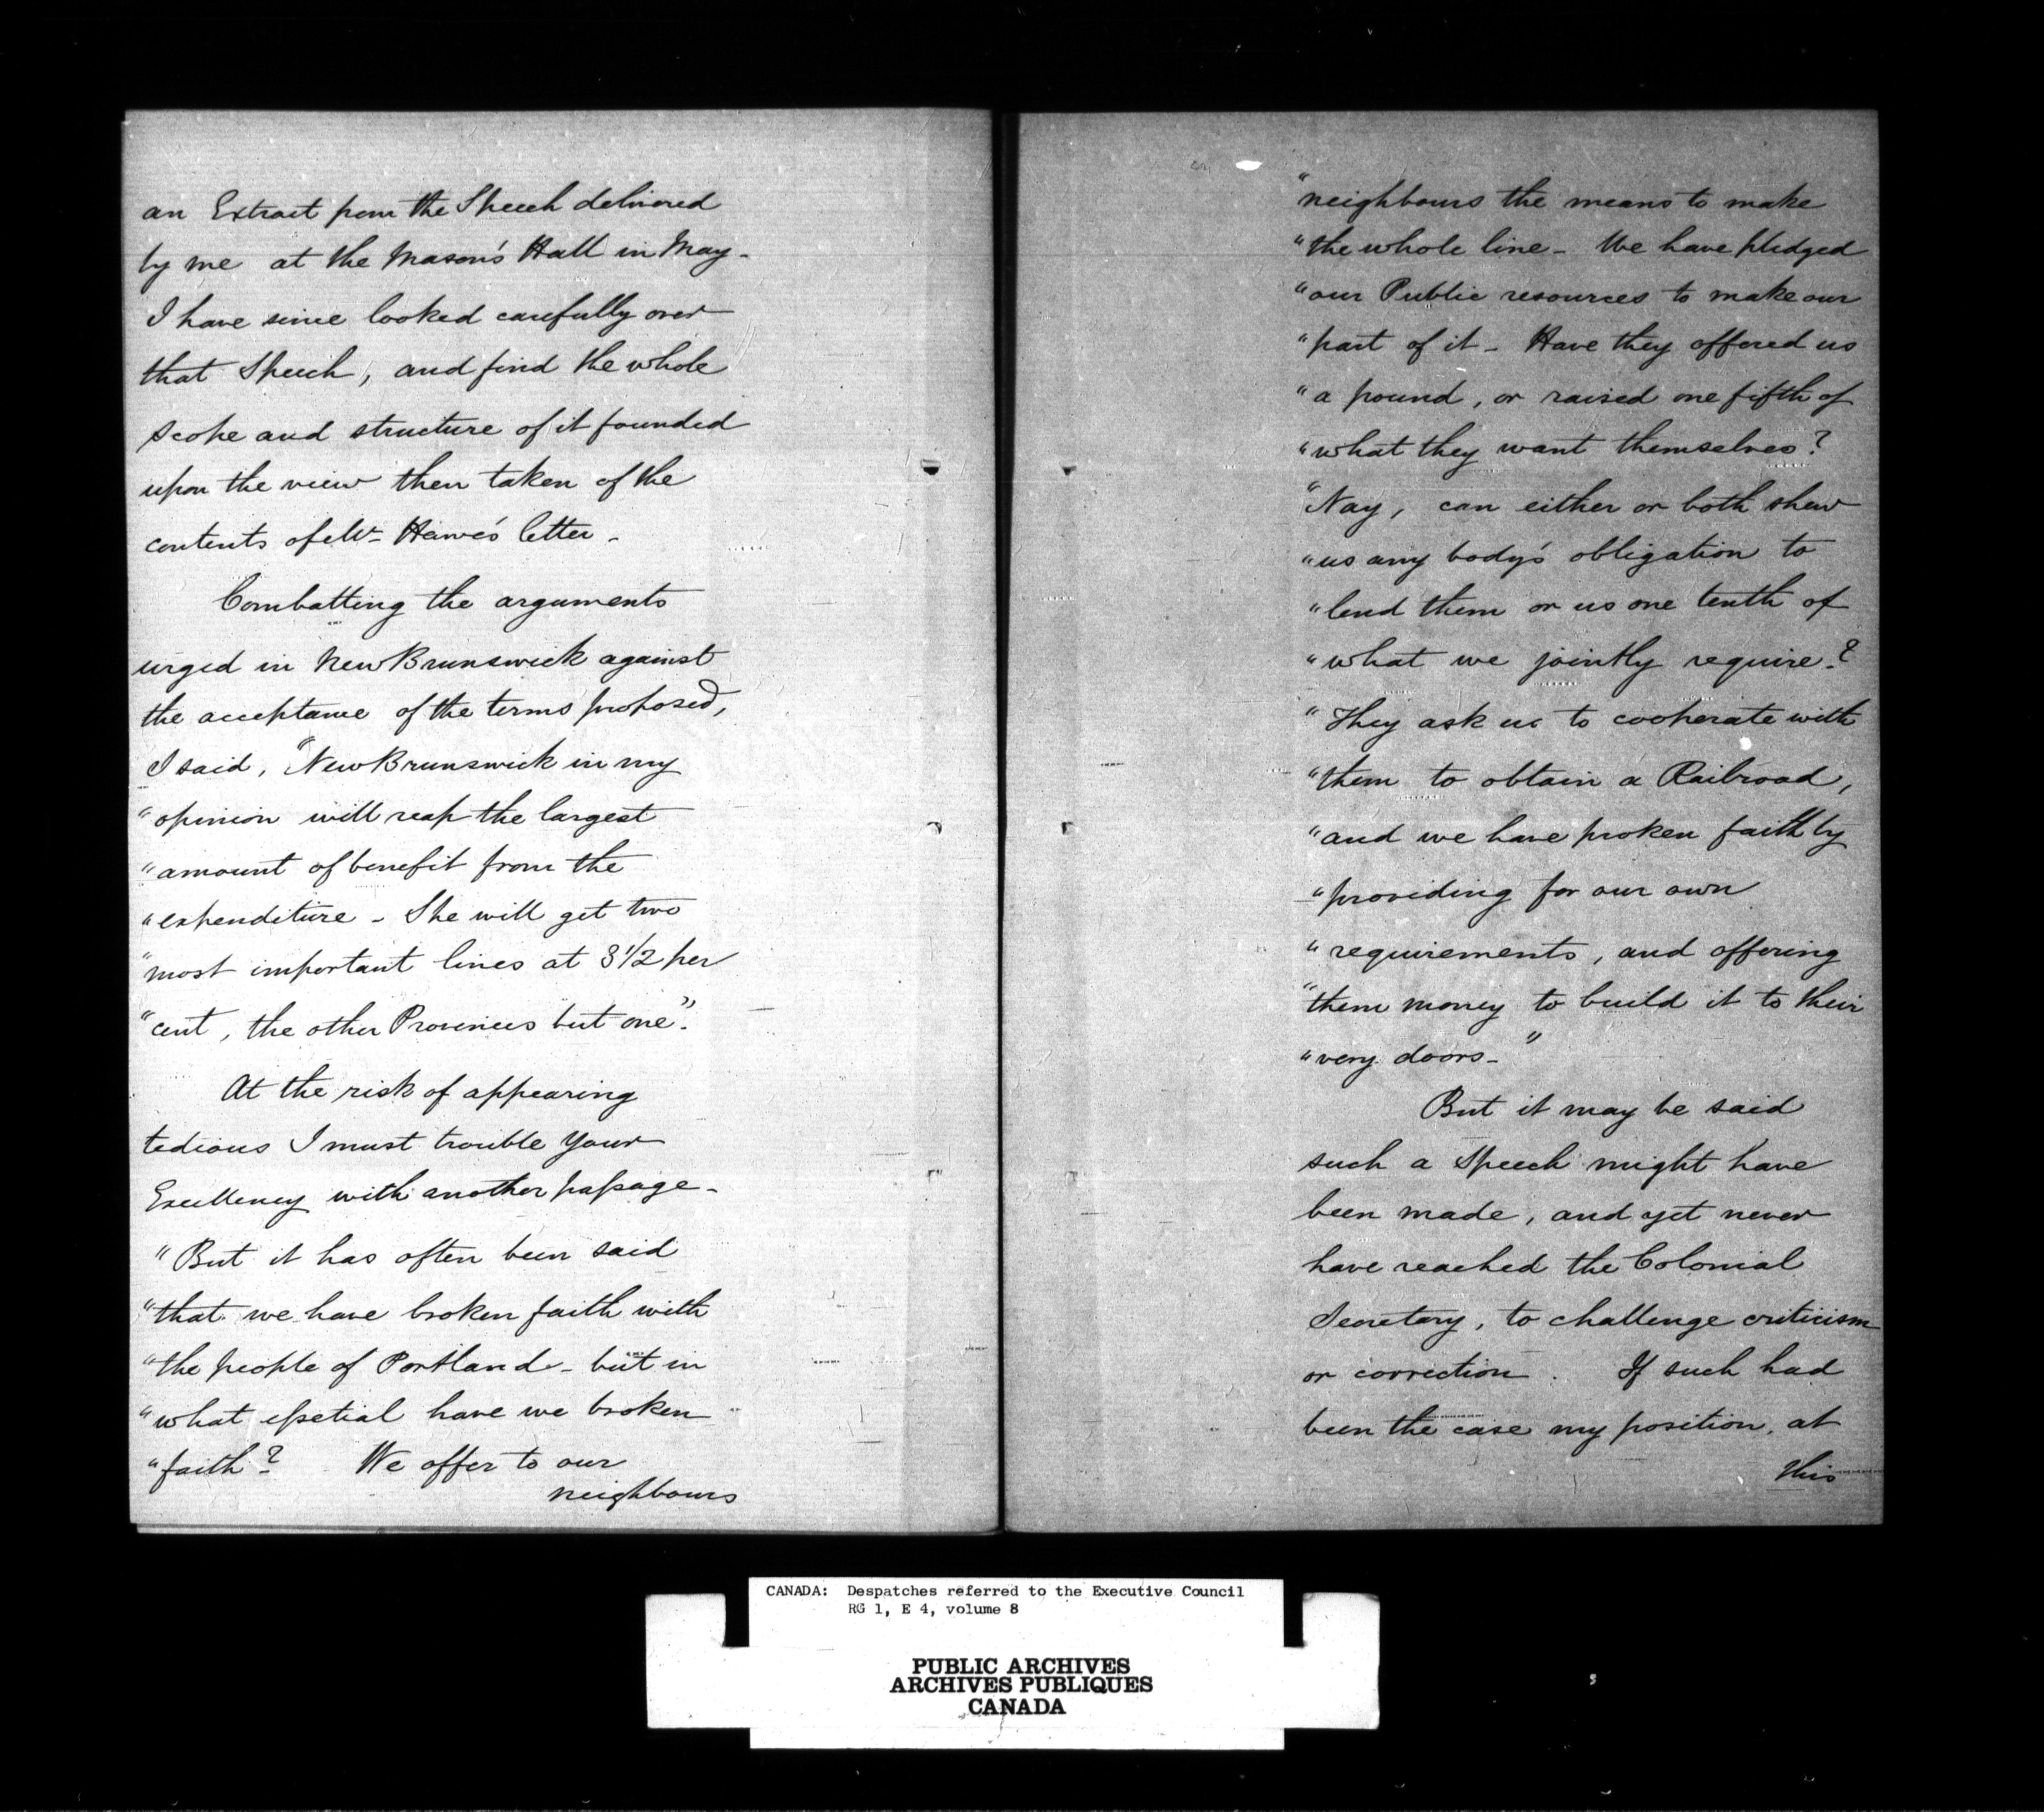 an Extract from the Speech delivered
by me at the Mason's Hall in May -
I have since looked carefully over
that Speech, and find the whole
scope and structure of it founded
upon the view then taken of the
contents of Mr. Hawe's letter -
Combatting the arguments
urged in New Brunswick against
the acceptance of the terms proposed,
I said, "New Brunswick in my
"opinion will reap the largest
"amount of benefit from the
"expenditure - She will get two
"most important lines at 3 1/2 per
"cent, the other Provinces but one".
At the risk of appearing
tedious I must trouble Your
Excellency with another passage -
"But it has often been said
"that we have broken faith with
"the people of Portland - but in
"what essetial have we broken
"faith? We offer to our
neighbours
"neighbours the means to make
"the whole line - We have pledged
"our Public resources to make our
"part of it - Have they offered us
"a pound, or raised one fifth of
"what they want themselves?
"Nay, can either or both shew
"us any body's obligation to
"lend them or us one tenth of
"what we jointly require?
"They ask us to cooperate with
"them to obtain a Railroad,
"and we have proken faith by
"providing for our own
"requirements, and offering
"them money to build it to their
"very doors - "
But it may be said
such a Speech might have
been made, and yet never
have reached the Colonial
Secretary, to challenge criticism
or correction. If such had
been the case my position, at
this
CANADA: Despatches referred to the Executive Council
RG 1, E 4, volume 8
PUBLIC ARCHIVES
ARCHIVES PUBLIQUES
CANADA